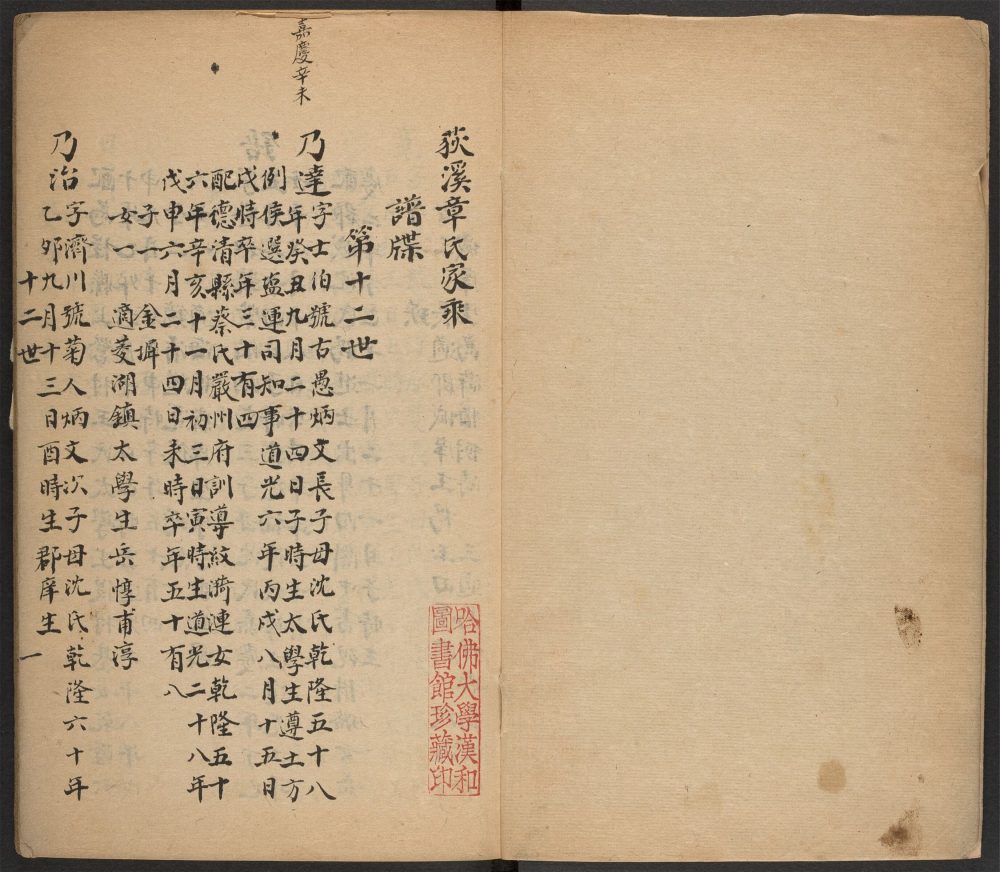 荻溪章氏家乘
哈佛大學漢和
圖書館珍藏印
譜牒
第十二世
嘉慶辛未
乃達字士伯號古愚炳文長子母沈氏乾隆五十八
年癸丑九月二十四日子時生太學生遵土方
例候選盐運司知事道光六年丙戌八月十五日
戌時卒年三十有四
配德清縣蔡氏嚴州府訓導紋漪漣女乾隆五十
六年辛亥十一月初三日寅時生道光二十八年
戊申六月二十四日未時卒年五十有八
子一金墀
女一適菱湖鎮太學生岳惇甫淳
乃治字濟川號菊人炳文次子母沈氏乾隆六十年
乙卯九月十三日酉時生郡庠生
十二世 一